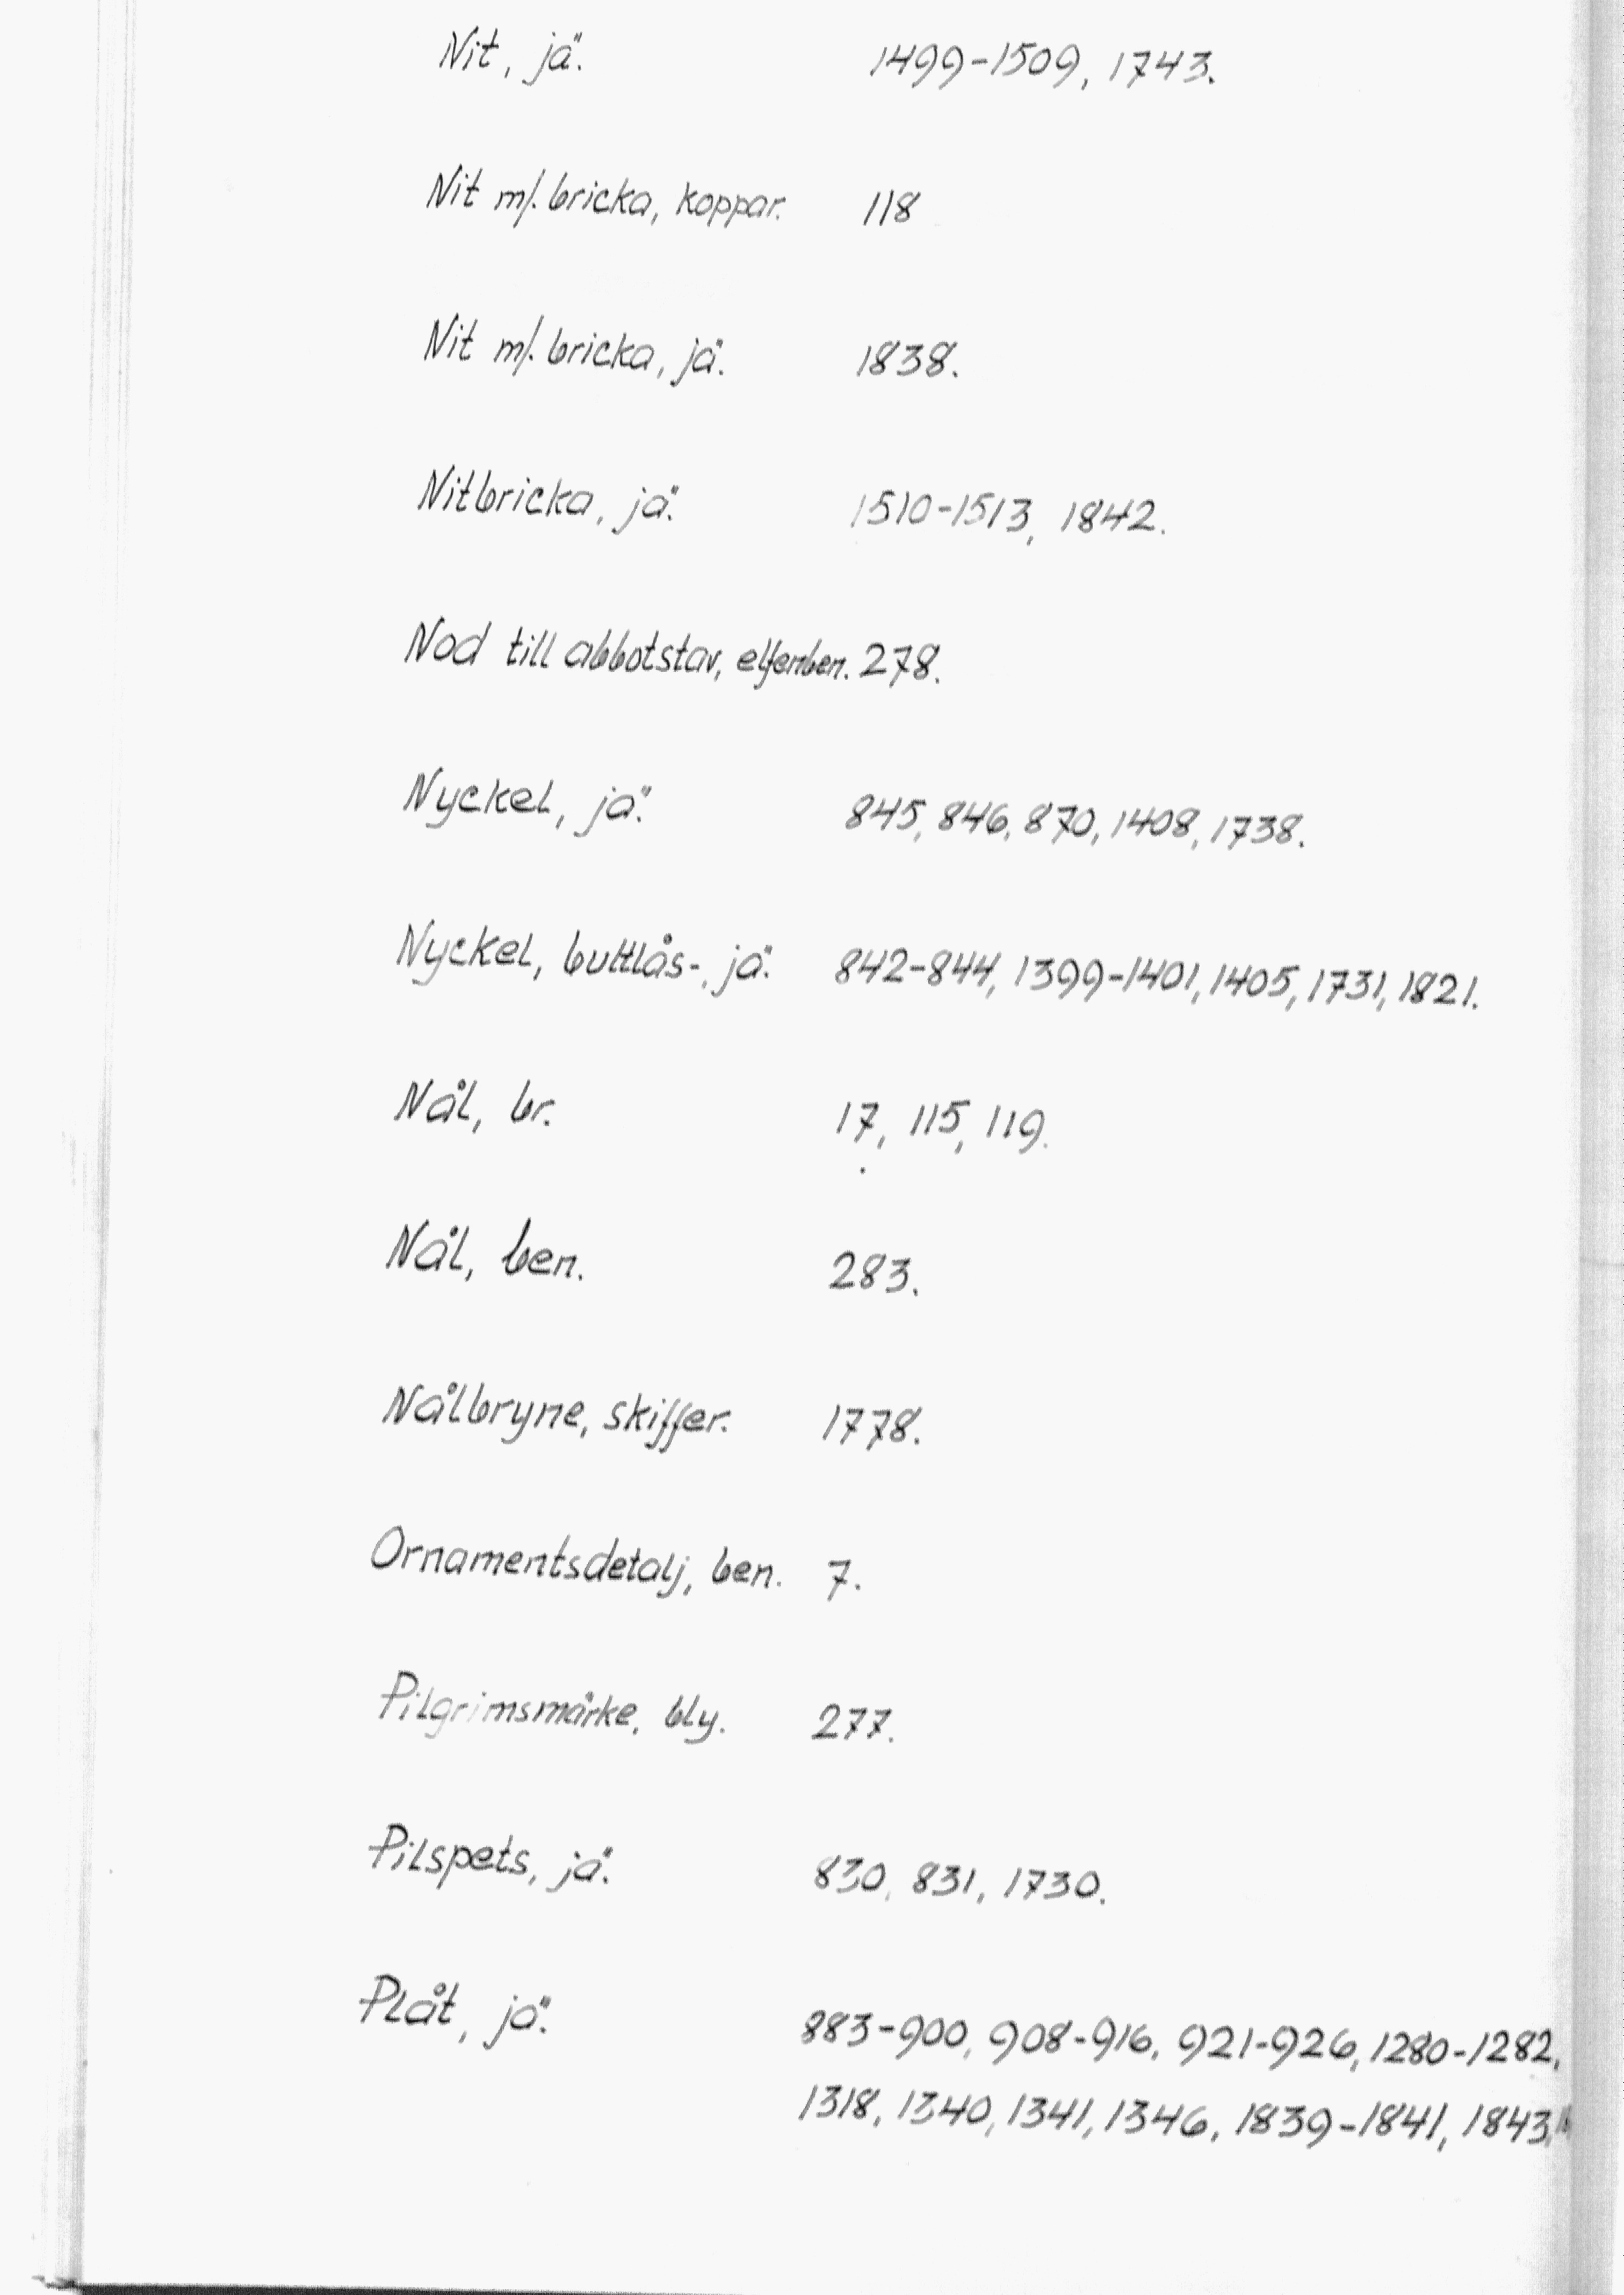 Nit, jä. 1499-1509, 1743.
Nit m/. bricka, koppar. 118
Nit m/. bricka, jä. 1838.
Nitbricka, jä. 1510-1513, 1842.
Nod till abbotstav, elfenben. 278.
Nyckel, jä. 845, 846, 870, 1408, 1738.
Nyckel, bultlås-, jä. 842-844, 1399-1401, 1405, 1731, 1821.
Nål, br. 17, 115, 119.
Nål, ben. 283.
Nålbryne, skiffer. 1778.
Ornamentsdetalj, ben. 7.
Pilgrimsmärke, bly. 277.
Pilspets, jä. 830, 831, 1730.
Plåt, jä. 883-900, 908-916, 921-926, 1280-1282,
1318, 1340, 1341, 1346, 1839-1841, 1843,